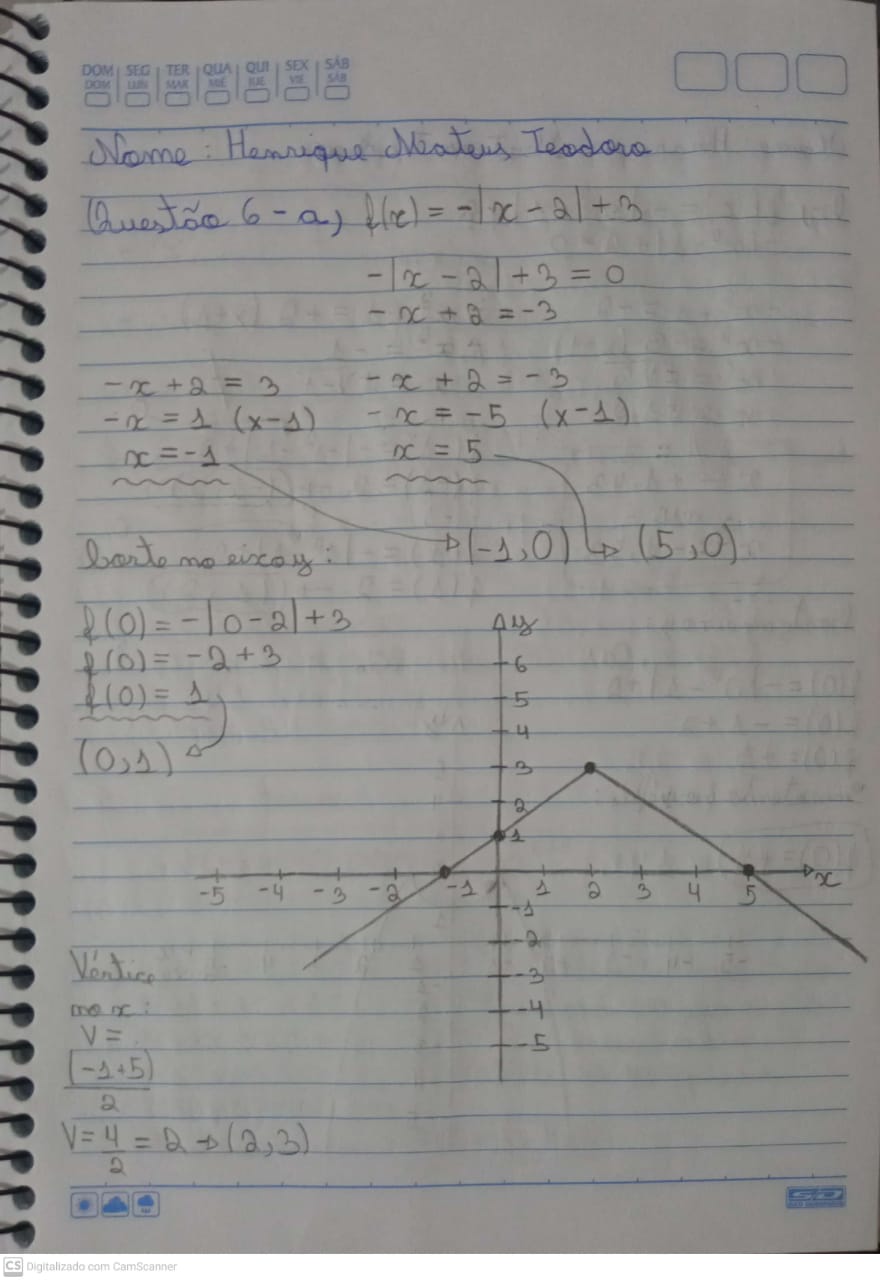 DOM SEG TER QUA QUI SEX SÁB
DOM LUN MAR MIÉ JUE VIE SÁB
Nome: Henrique Mateus Teodoro
Questão 6 - a) f(x) = -|x - 2| + 3
-|x - 2| + 3 = 0
- x + 2 = -3
-x + 2 = 3 - x + 2 = - 3
-x = 1 (x-1) - x = -5 (x-1)
x = -1 x = 5
Corte no eixo y: (-1,0) (5,0)
f(0) = -|0 - 2| + 3
f(0) = -2 + 3
f(0) = 1
(0,1)
y
6
5
4
3
2
1
-5 -4 -3 -2 -1 1 2 3 4 5 x
-1
-2
-3
-4
-5
Vértice
no x:
V =
(-1+5)
2
V = 4 = 2 → (2,3)
2
CS Digitalizado com CamScanner